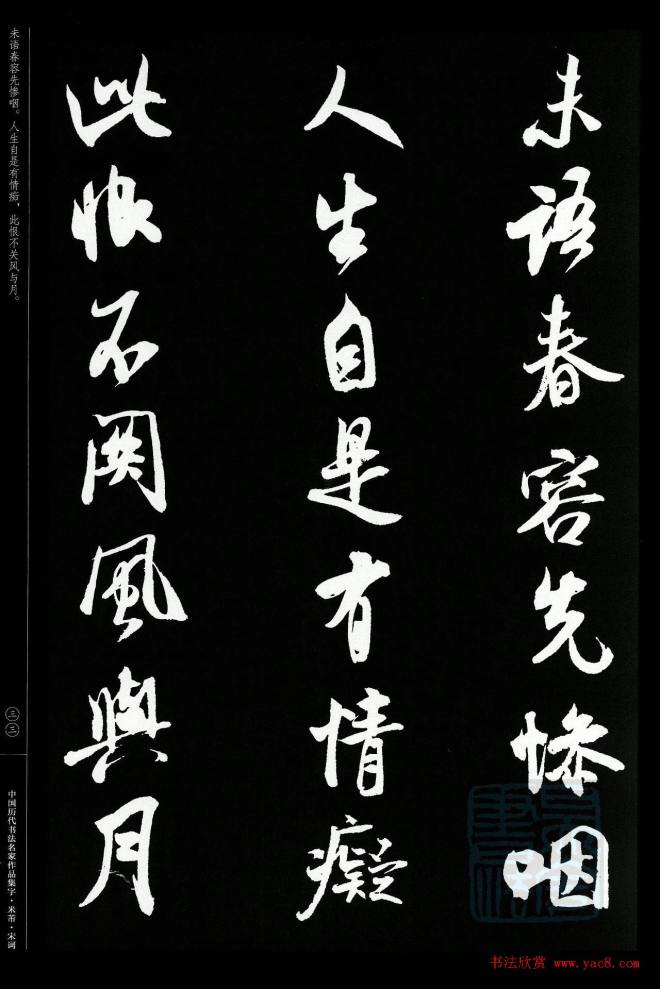 未语春容先惨咽
人生自是有情癡
此恨不関風與月
未语春容先惨咽。人生自是有情痴，此恨不关风与月。
三三
中国历代书法名家作品集字·米芾·宋词
书法欣赏 www.yac8.com